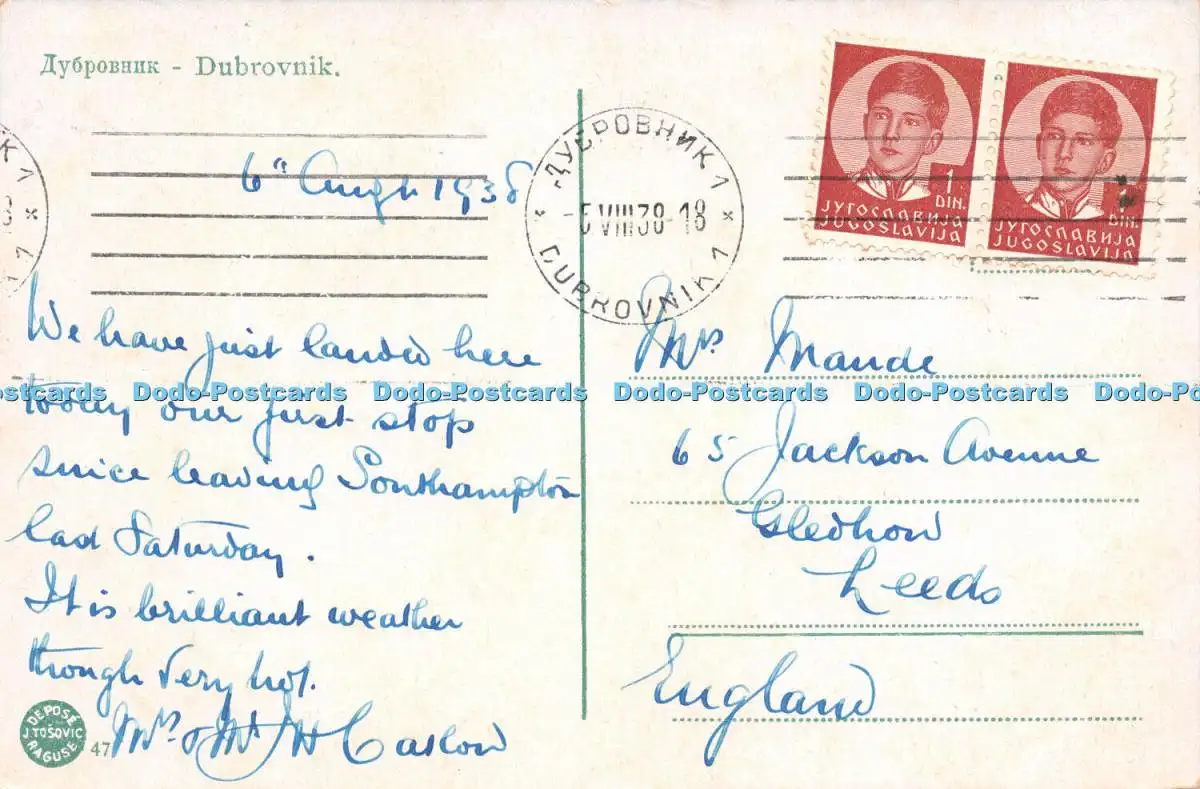 Дубровник - Dubrovnik.
6th Augt 1938
ДУБРОВНИК 1
-5 VIII 38-18
DUBROVNIK 1
1
DIN.
ЈУГОСЛАВИЈА
JUGOSLAVIJA
DIN.
ЈУГОСЛАВИЈА
JUGOSLAVIJA
We have just landed here
today our first stop
since leaving Southampton
last Saturday.
It is brilliant weather
though very hot.
Mrs & Mr
Mrs Maude
65 Jackson Avenue
Gledhow
Leeds
England
Dodo-Postcards Dodo-Postcards Dodo-Postcards Dodo-Postcards Dodo-Postcards
DEPOSÉ
J. TOŠOVIC
RAGUSE
47